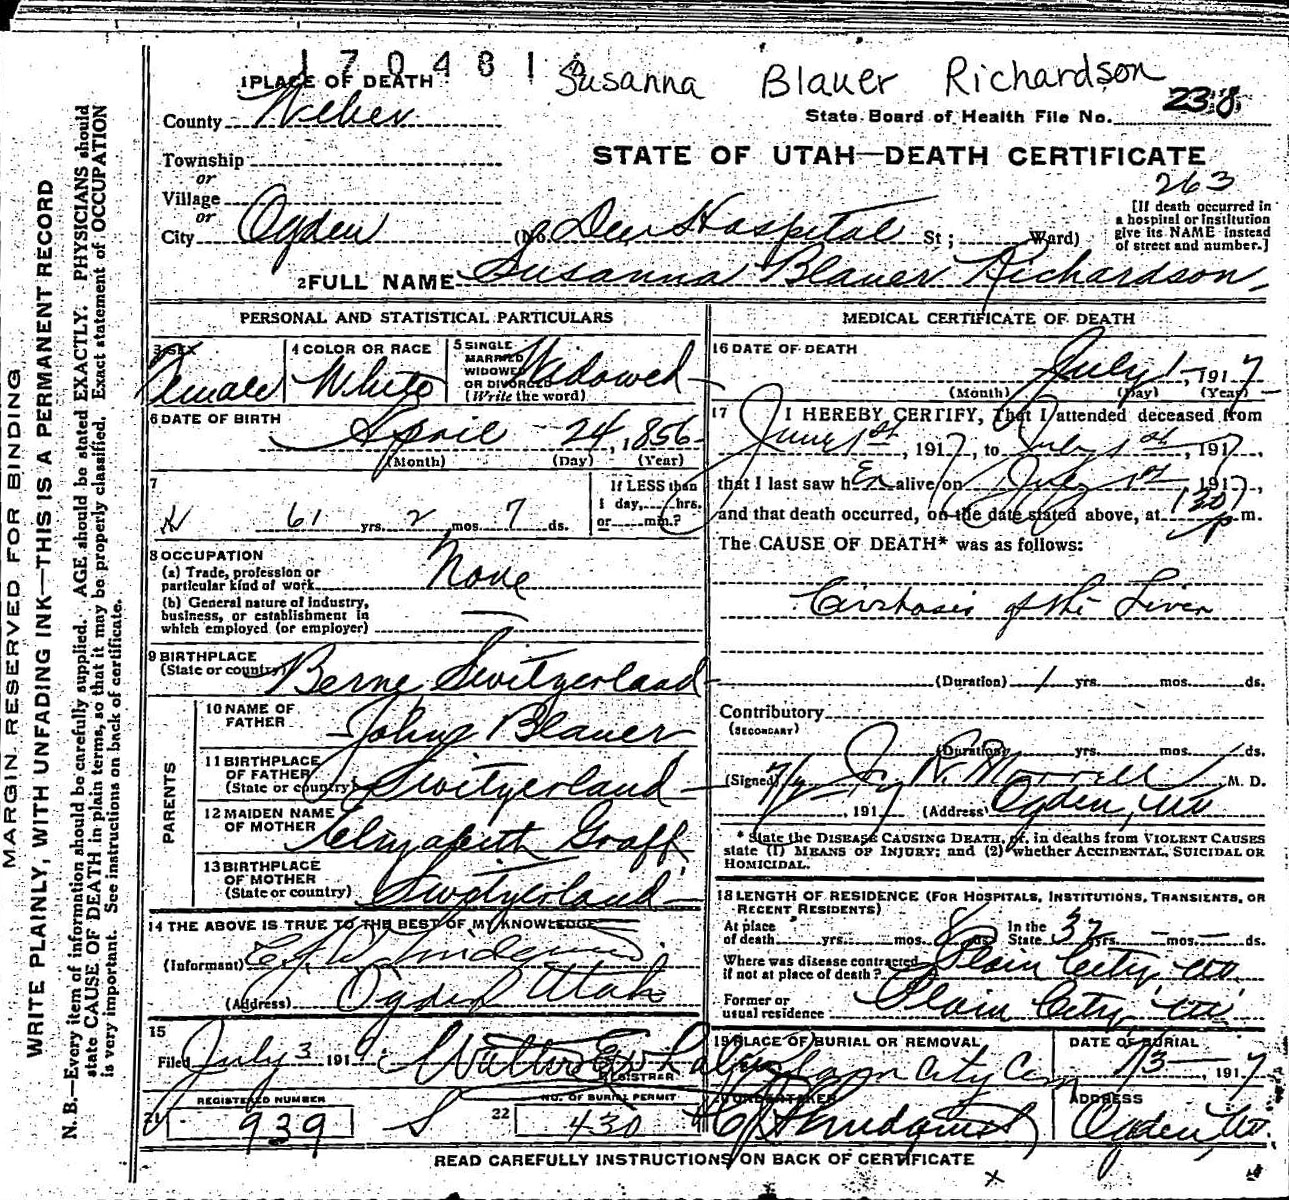 170481
Susanna Blauer Richardson
1 PLACE OF DEATH
County Weber
State Board of Health File No. 238
Township
or
Village
or
City Ogden
STATE OF UTAH—DEATH CERTIFICATE
263
(No. Dee Hospital St; Ward)
[If death occurred in
a hospital or institution
give its NAME instead
of street and number.]
2 FULL NAME Susanna Blauer Richardson
PERSONAL AND STATISTICAL PARTICULARS
3 SEX
Female
4 COLOR OR RACE
White
5 SINGLE
MARRIED
WIDOWED
OR DIVORCED
(Write the word)
Widowed
6 DATE OF BIRTH
April 24, 1856
(Month) (Day) (Year)
7
61 yrs. 2 mos. 7 ds.
If LESS than
1 day, hrs.
or min.?
8 OCCUPATION
(a) Trade, profession or
particular kind of work None
(b) General nature of industry,
business, or establishment in
which employed (or employer)
9 BIRTHPLACE
(State or country) Berne Switzerland
PARENTS
10 NAME OF
FATHER John Blauer
11 BIRTHPLACE
OF FATHER
(State or country) Switzerland
12 MAIDEN NAME
OF MOTHER Elizabeth Graff
13 BIRTHPLACE
OF MOTHER
(State or country) Switzerland
14 THE ABOVE IS TRUE TO THE BEST OF MY KNOWLEDGE
(Informant)
(Address) Ogden Utah
15
Filed July 3 191
REGISTRAR
REGISTERED NUMBER
21 939
NO. OF BURIAL PERMIT
22 430
MEDICAL CERTIFICATE OF DEATH
16 DATE OF DEATH
July 1, 1917
(Month) (Day) (Year)
17 I HEREBY CERTIFY, That I attended deceased from
June 1st, 1917, to July 1st, 1917,
that I last saw her alive on July 1st 1917,
and that death occurred, on the date stated above, at 130 p m.
The CAUSE OF DEATH* was as follows:
Cirrhosis of the Liver
(Duration) 1 yrs. mos. ds.
Contributory
(SECONDARY)
(Duration) yrs. mos. ds.
(Signed) Morrell M. D.
, 1917 (Address) Ogden, Uta
* State the DISEASE CAUSING DEATH, or, in deaths from VIOLENT CAUSES
state (1) MEANS OF INJURY; and (2) whether ACCIDENTAL, SUICIDAL OR
HOMICIDAL.
18 LENGTH OF RESIDENCE (FOR HOSPITALS, INSTITUTIONS, TRANSIENTS, OR
RECENT RESIDENTS)
At place
of death yrs. mos. 8 ds. In the
State 37 yrs. — mos. — ds.
Where was disease contracted
if not at place of death? Plain City, Uta
Former or
usual residence Plain City, Uta
19 PLACE OF BURIAL OR REMOVAL
Plain City Cem
DATE OF BURIAL
7/3, 1917
20 UNDERTAKER
ADDRESS
Ogden, Ut.
READ CAREFULLY INSTRUCTIONS ON BACK OF CERTIFICATE
MARGIN RESERVED FOR BINDING
WRITE PLAINLY, WITH UNFADING INK—THIS IS A PERMANENT RECORD
N. B.—Every item of information should be carefully supplied. AGE should be stated EXACTLY. PHYSICIANS should
state CAUSE OF DEATH in plain terms, so that it may be properly classified. Exact statement of OCCUPATION
is very important. See instructions on back of certificate.